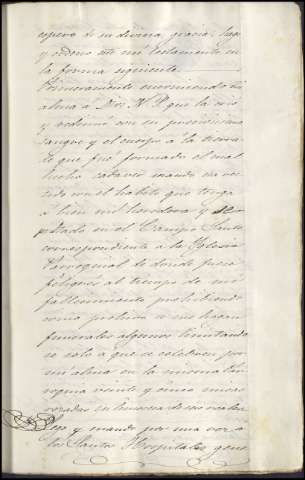 espero de su divina gracia, hago
y ordeno este mi testamento en
la forma siguiente.
Primeramente encomiendo mi
alma á Dios N. S. que la crió
y redimió con su preciosísima
sangre y el cuerpo á la tierra
de que fué formado el cual
hecho cadaver mando sea ves-
tido con el habito que tenga
á bien mi heredera y de-
pitado en el Campo Santo
correspondiente á la Yglesia
Parroquial de donde fuere
feligres al tiempo de mi
fallecimiento prohibiendo
como prohibo se me hagan
funerales algunos limitando
se solo á que se celebren por
mi alma en la misma Par-
roquia veinte y cinco misas
rezadas con limosna de seis reales
y mando por una vez á
los Santos Hospitales gene